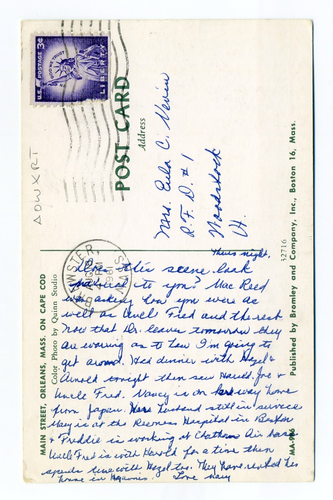 U.S. POSTAGE 3¢
IN GOD WE TRUST
LIBERTY
POST CARD
Address
Mrs. Eula C.
R.F.D. #1
Woodstock
Vt.
AOWXRT
BREWSTER,
MASS.
32716
Thurs night,
Does this scene look
familiar to you? Mac Reed
was asking how you were as
well as Uncle Fred and the rest.
Now that Dr. leaves tomorrow they
are worrying as to how I'm going to
get around. Had dinner with Hazel &
Arnold tonight then saw Harold, Joe &
Uncle Fred. Nancy is on her way home
from Japan. Her husband still in service
May is at the Hospital in Boston
& Freddie is working at Chatham Air base
Uncle Fred is with Harold for a time then
spends time with Hazel too. They have rented his
house in Hyannis. Love
MAIN STREET, ORLEANS, MASS. ON CAPE COD
Color Photo by Quinn Studio
MA-986
Published by Bromley and Company, Inc., Boston 16, Mass.